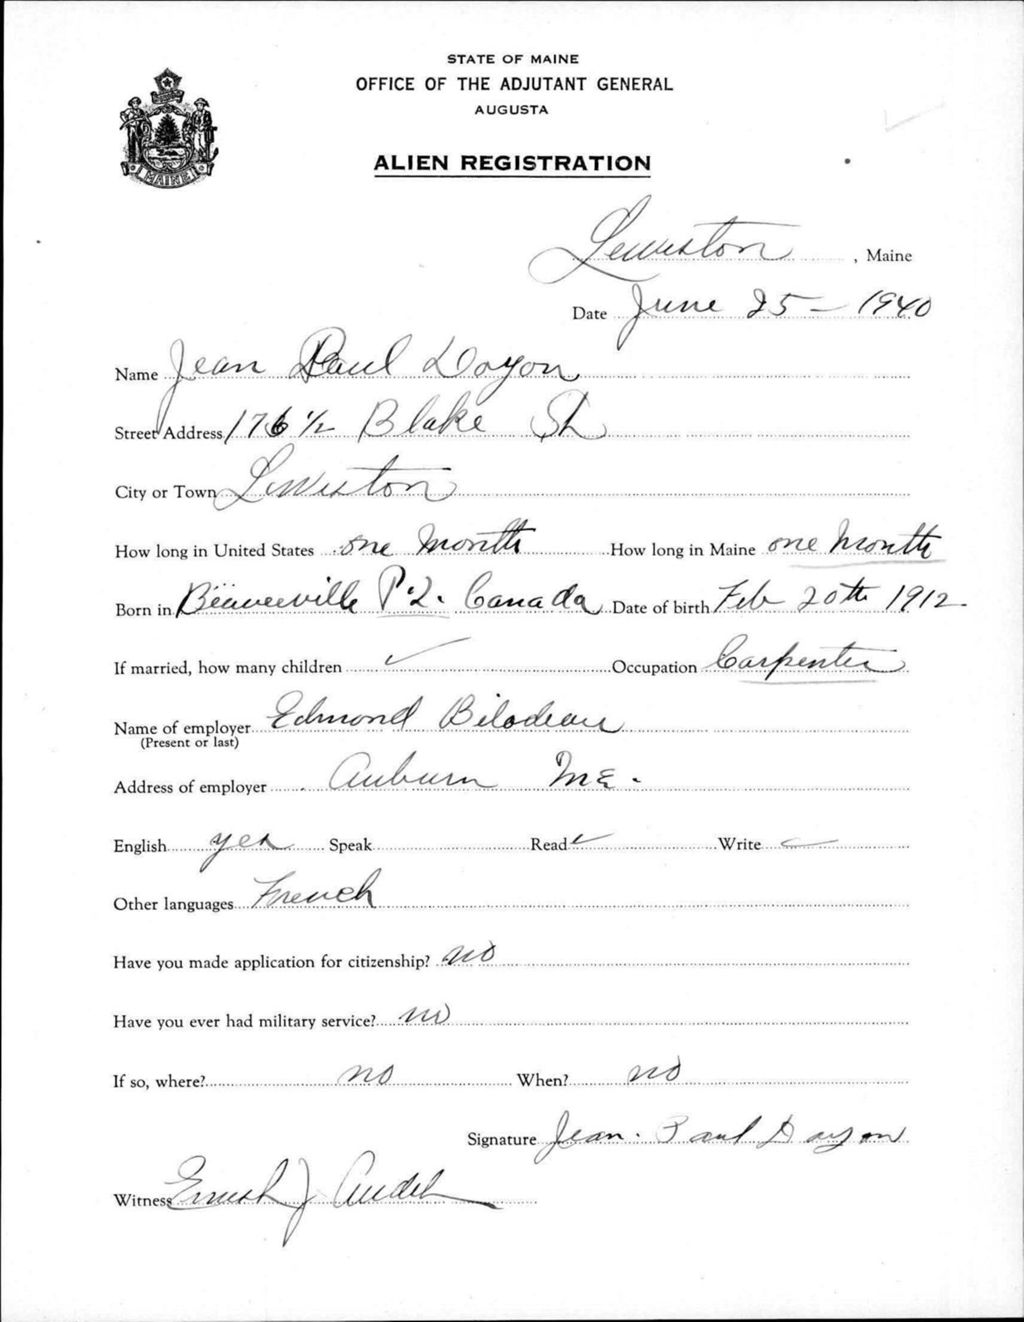 STATE OF MAINE
OFFICE OF THE ADJUTANT GENERAL
AUGUSTA
ALIEN REGISTRATION
MAINE
Lewiston, Maine
Date June 25 – 1940
Name Jean Paul Doyon
Street Address 176 1/2 Blake St
City or Town Lewiston
How long in United States one month How long in Maine one month
Born in Beauceville P.Q. Canada Date of birth Feb 20th 1912
If married, how many children ✓ Occupation Carpenter
Name of employer Edmond Bilodeau
(Present or last)
Address of employer Auburn ME.
English yes Speak Read ✓ Write ✓
Other languages French
Have you made application for citizenship? no
Have you ever had military service? no
If so, where? no When? no
Signature Jean. Paul Doyon
Witness J